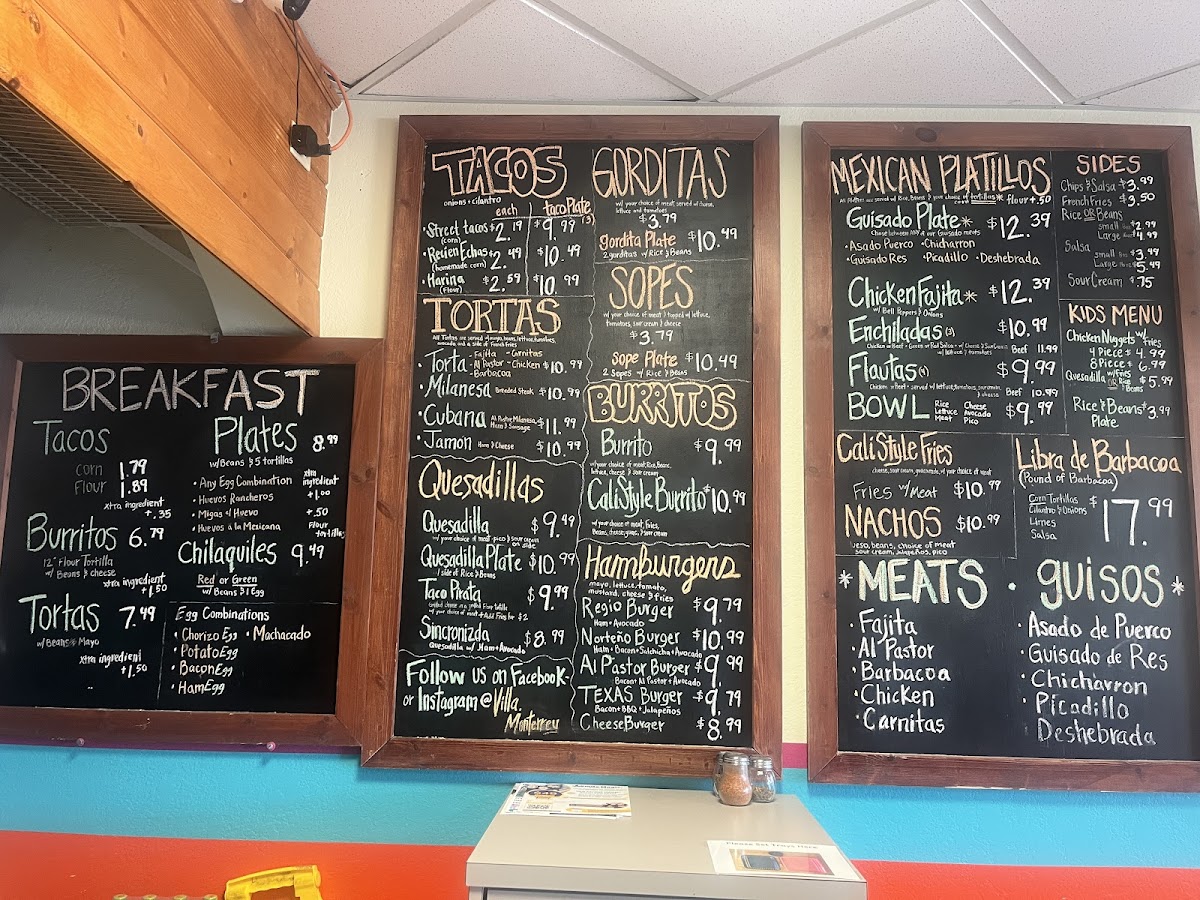 BREAKFAST
Tacos
corn 1.79
Flour 1.89
xtra ingredient
+.35
Burritos 6.79
12" Flour Tortilla
w/ Beans & cheese
xtra ingredient
+1.50
Tortas 7.49
w/Beans & Mayo
xtra ingredient
+1.50
Plates 8.99
w/Beans & 5 tortillas
• Any Egg Combination
• Huevos Rancheros
• Migas c/ Huevo
• Huevos á la Mexicana
xtra
ingredient
+1.00
+.50
Flour
tortillas
Chilaquiles 9.49
Red or Green
w/ Beans & 1 Egg
Egg Combinations
• Chorizo Egg • Machacado
• Potato Egg
• Bacon Egg
• Ham Egg
TACOS
onions & cilantro
each taco Plate (3)
• Street tacos $2.19 $9.99
(corn)
• Recien Echas $2.49 $10.49
(homemade corn)
• Harina $2.59 $10.99
(Flour)
TORTAS
All Tortas are served w/mayo, beans, lettuce, tomatoes,
avocado and a side of French Fries
• Torta - Fajita - Carnitas
- Al Pastor - Chicken $10.99
- Barbacoa
• Milanesa Breaded Steak $10.99
• Cubana Al Pastor, Milanesa,
Ham & Sausage $11.99
• Jamon Ham & Cheese $10.99
Quesadillas
Quesadilla $9.49
w/ your choice of meat • pico & sour cream
on side
Quesadilla Plate $10.99
1 side of Rice & Beans
Taco Pirata $9.99
Grilled cheese in a grilled Flour tortilla
w/ your choice of meat * Add Fries for $2
Sincronizda $8.99
Quesadilla w/ Ham + Avocado
Follow us on Facebook
or Instagram @Villa.
Monterrey
GORDITAS
w/ your choice of meat, served w/ beans,
lettuce and tomatoes
$3.79
gordita Plate $10.49
2 gorditas w/ Rice & Beans
SOPES
w/ your choice of meat & topped w/ lettuce,
tomatoes, sour cream & cheese
$3.79
sope Plate $10.49
2 Sopes w/ Rice & Beans
BURRITOS
Burrito $9.99
w/ your choice of meat, Rice, Beans,
lettuce, cheese & sour cream
Cali Style Burrito $10.99
w/ your choice of meat, fries,
Beans, cheese, guac, & sour cream
Hamburgers
mayo, lettuce, tomato,
mustard, cheese & fries
Regio Burger $9.79
Ham + Avocado
Norteño Burger $10.99
Ham + Bacon + Salchicha + Avocado
Al Pastor Burger $9.99
Bacon + Al Pastor + Avocado
TEXAS Burger $9.79
Bacon + BBQ + Jalapeños
Cheese Burger $8.99
MEXICAN PLATILLOS
All Plates are served w/ Rice, Beans & your choice of tortillas* flour +.50
Guisado Plate* $12.39
Chose between any of our Guisado meats
• Asado Puerco • Chicharron
• Guisado Res • Picadillo • Deshebrada
Chicken Fajita* $12.39
w/ Bell Peppers & Onions
Enchiladas (3) $10.99
Beef 11.99
w/ lettuce & tomatoes
Flautas (4) $9.99
Chicken or Beef - served w/ lettuce, tomatoes, sour cream,
& cheese
Beef 10.99
BOWL Rice Cheese
Lettuce Avocado
Meat Pico $9.99
Cali Style Fries
cheese, sour cream, guacamole, w/ your choice of meat
Fries w/ Meat $10.99
NACHOS $10.99
Queso, beans, choice of meat
sour cream, jalapeños, pico
SIDES
Chips & Salsa $3.99
French Fries $3.50
Rice OR Beans
small $2.99
Large $4.99
Salsa
small $3.49
Large $5.49
Sour Cream $.75
KIDS MENU
Chicken Nuggets w/ Fries
4 Piece $4.99
8 Piece $6.99
Quesadilla w/Fries
OR Rice & Beans $5.99
Rice & Beans $3.99
Plate
Libra de Barbacoa
(Pound of Barbacoa)
Corn Tortillas
Cilantro & Onions
Limes
Salsa
$17.99
*MEATS
• Fajita
• Al Pastor
• Barbacoa
• Chicken
• Carnitas
• guisos*
• Asado de Puerco
• Guisado de Res
• Chicharron
• Picadillo
• Deshebrada
Please Set Trays Here